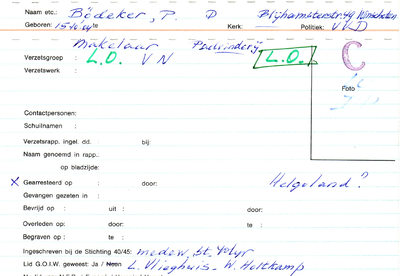 Naam etc.: Bödeker, P. D Blijhamsterstr 49 Winschoten
Geboren: 15 te Kerk: Politiek: VVD
Makelaar
Verzetsgroep : L.O. V N L.O. C
Verzetswerk :
Foto
Contactpersonen:
Schuilnamen :
Verzetsrapp. ingel. dd. : bij:
Naam genoemd in rapp.:
op bladzijde:
X Gearresteerd op : door: Helgoland?
Gevangen gezeten in :
Bevrijd op : uit : door:
Overleden op: door: te :
Begraven op : te :
Ingeschreven bij de Stichting 40/45: medew. St. 40/45
Lid G.O.I.W. geweest: Ja / Neen L. Vlieghuis - W. Holtkamp